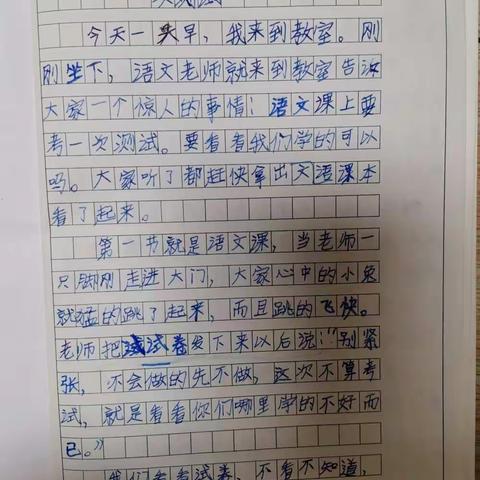 今天一大早，我来到教室。刚
刚坐下，语文老师就来到教室告诉
大家一个惊人的事情：语文课上要
考一次测试。要看看我们学的可以
吗。大家听了都赶快拿出文语课本
看了起来。
第一节就是语文课，当老师一
只脚刚走进大门，大家心中的小兔
就猛的跳了起来，而且跳的飞快。
老师把试卷发下来以后说：“别紧
张，不会做的先不做，这次不算考
试，就是看看你们哪里学的不好而
已。”
我们看看试卷，不看不知道，